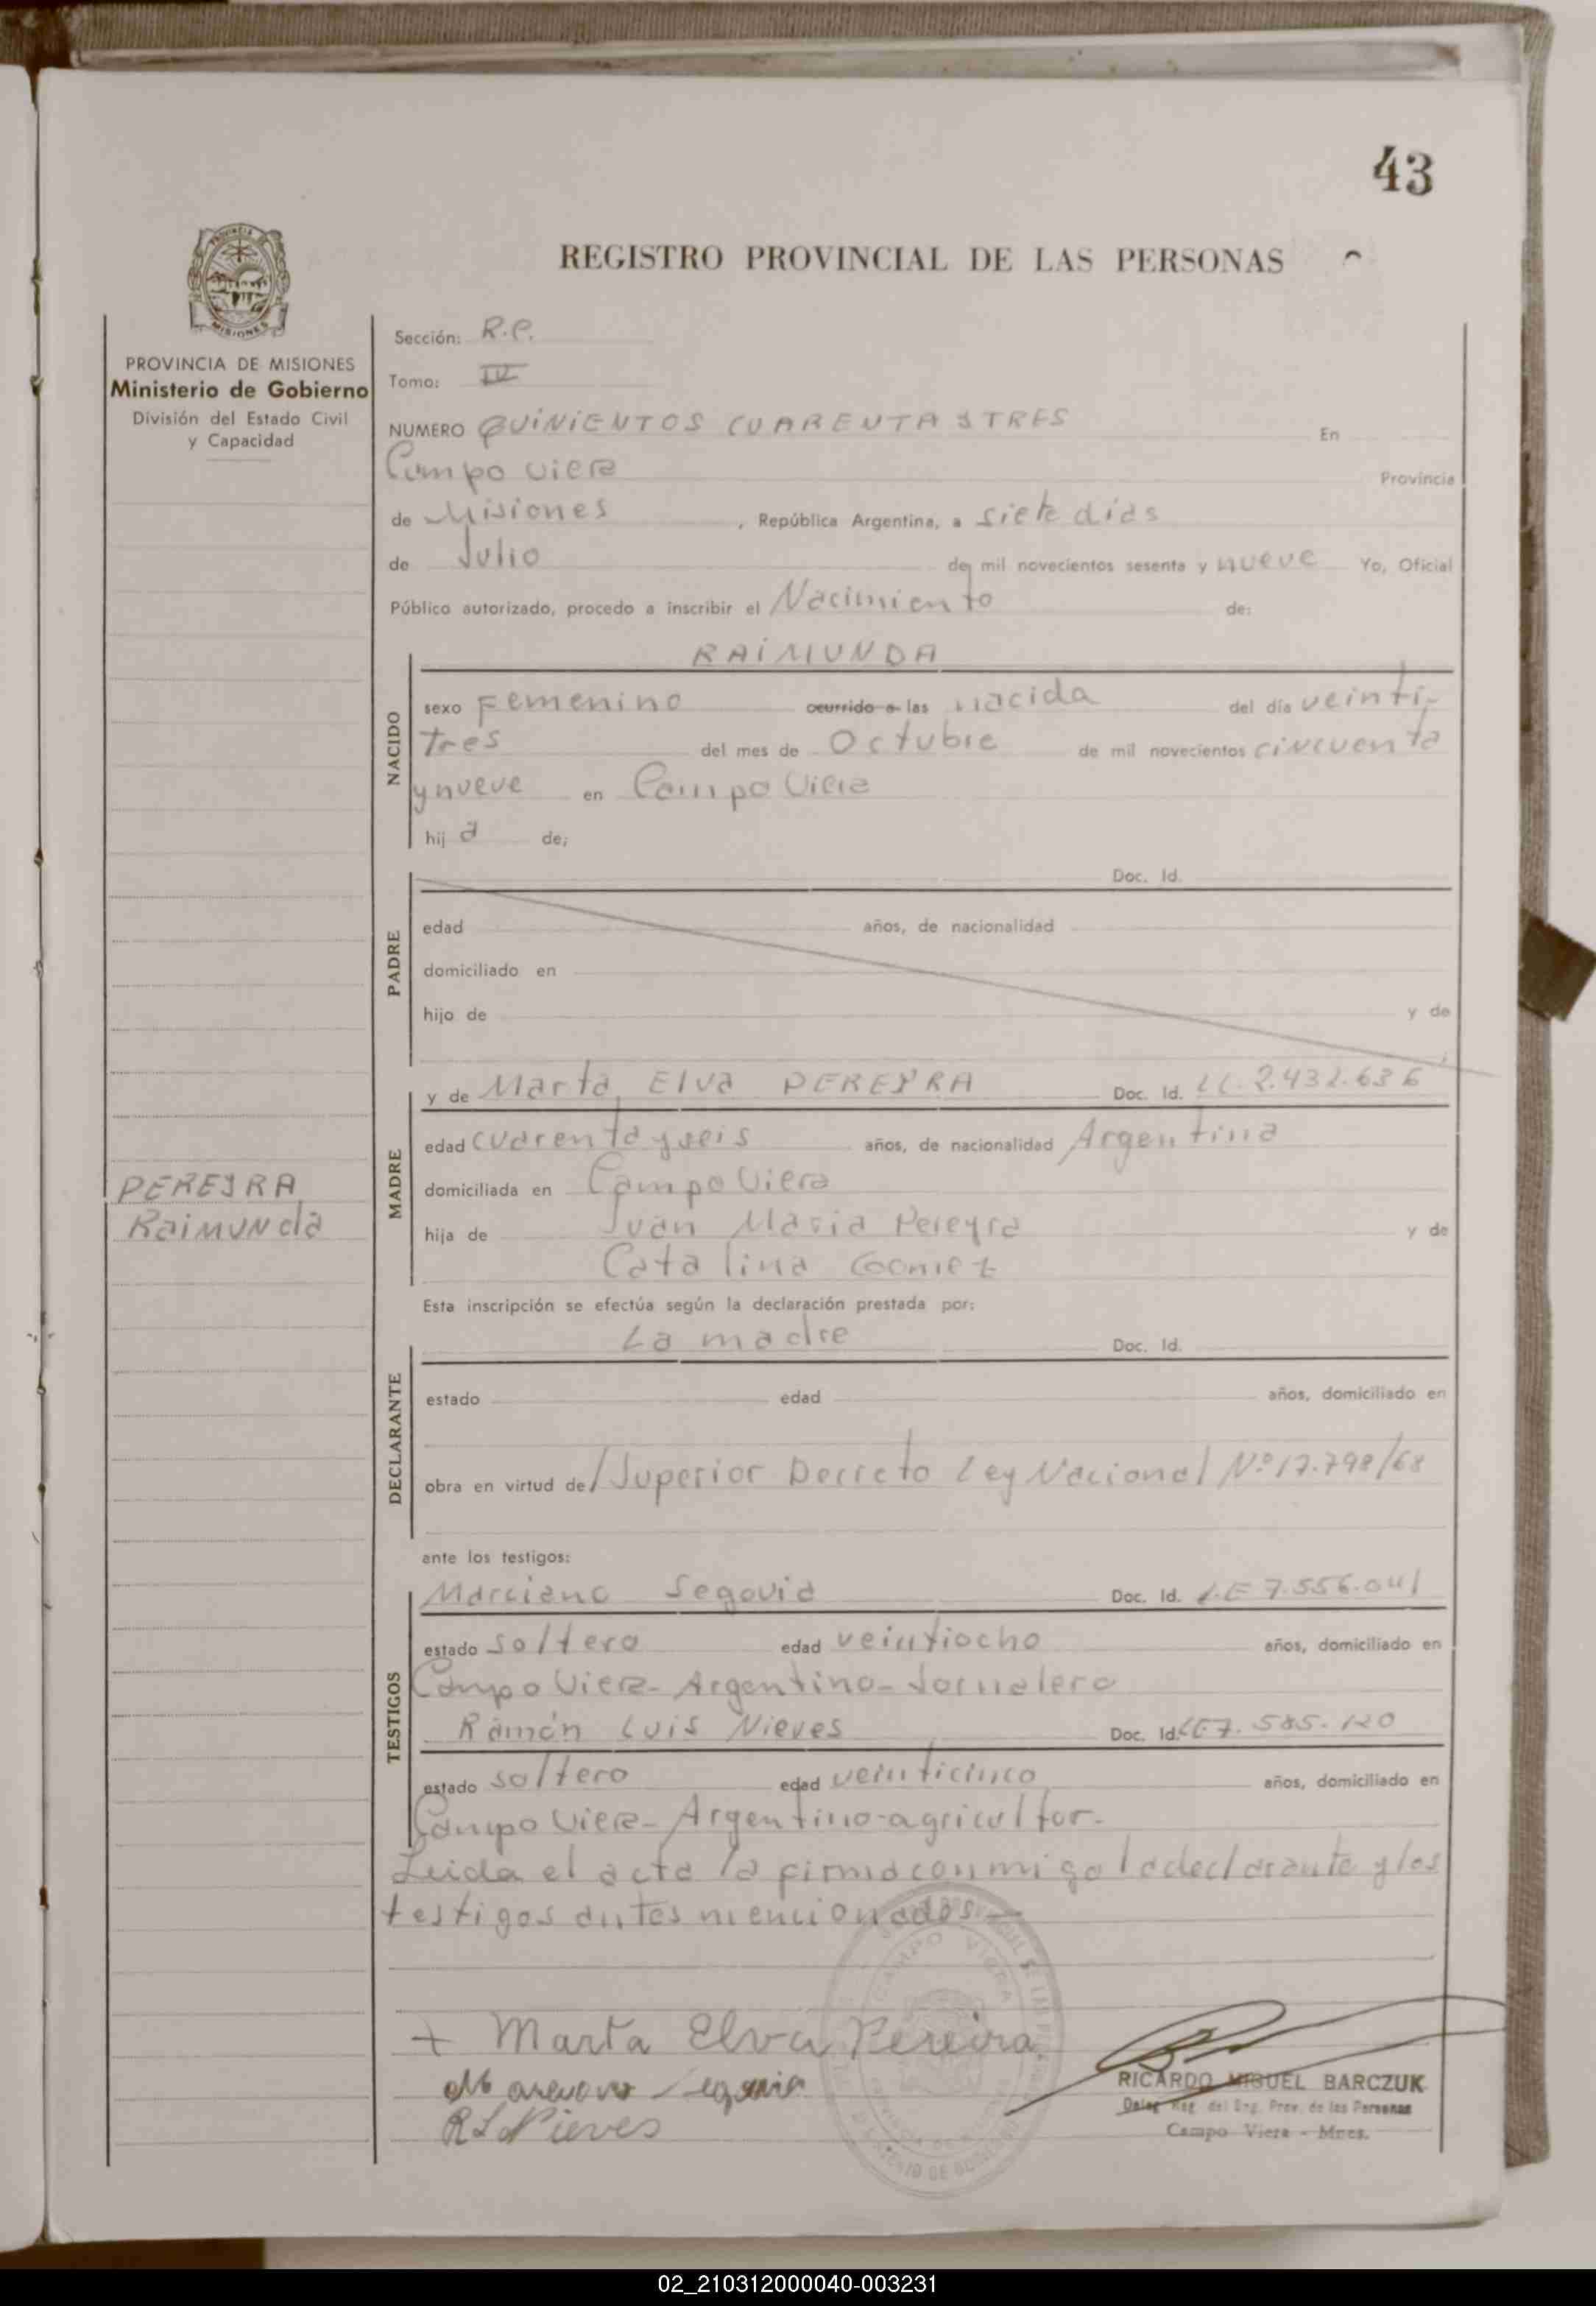 43
REGISTRO PROVINCIAL DE LAS PERSONAS
PROVINCIA DE MISIONES
Ministerio de Gobierno
División del Estado Civil
y Capacidad
Sección: R.P.
Tomo: IV
NUMERO QUINIENTOS CUARENTA Y TRES En
Campo Viera Provincia
de Misiones, República Argentina, a siete días
de Julio de mil novecientos sesenta y nueve Yo, Oficial
Público autorizado, procedo a inscribir el Nacimiento de:
NACIDO
RAIMUNDA
sexo Femenino ocurrido a las nacida del día veinti-
tres del mes de Octubre de mil novecientos cincuenta
y nueve en Campo Viera
hija de;
PADRE
Doc. Id.
edad años, de nacionalidad
domiciliado en
hijo de y de
MADRE
y de Marta Elva PEREYRA Doc. Id. LC. 2.432.636
edad cuarenta y seis años, de nacionalidad Argentina
domiciliada en Campo Viera
hija de Juan Maria Pereyra y de
Catalina Gomez
PEREYRA
Raimunda
Esta inscripción se efectúa según la declaración prestada por:
DECLARANTE
La madre Doc. Id.
estado edad años, domiciliado en
obra en virtud de/ Superior Decreto Ley Nacional Nº 17.798/68
ante los testigos:
TESTIGOS
Marciano Segovia Doc. Id. L.E 7.556.041
estado soltero edad veintiocho años, domiciliado en
Campo Viera- Argentino- Jornalero
Ramón Luis Nieves Doc. Id. LE 7.585.120
estado soltero edad veinticinco años, domiciliado en
Campo Viera- Argentino-agricultor.
Leida el acta la firma conmigo la declarante y los
testigos antes mencionados
+ Marta Elva Pereira.
Segovia
RL Nieves
CAMPO VIERA
RICARDO MIGUEL BARCZUK
Deleg Reg. del Reg. Prov. de las Personas
Campo Viera - Mnes.
02_210312000040-003231